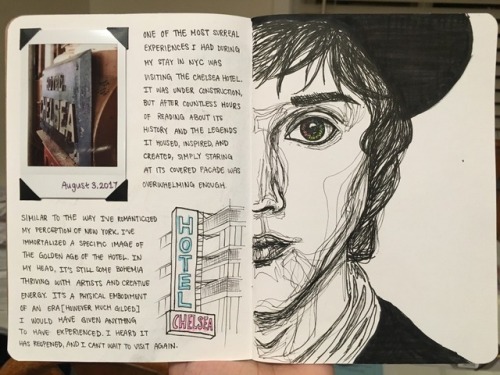 HOTEL
CHELSEA
August 3.2017
ONE OF THE MOST SURREAL
EXPERIENCES I HAD DURING
MY STAY IN NYC WAS
VISITING THE CHELSEA HOTEL.
IT WAS UNDER CONSTRUCTION,
BUT AFTER COUNTLESS HOURS
OF READING ABOUT ITS
HISTORY AND THE LEGENDS
IT HOUSED, INSPIRED, AND
CREATED, SIMPLY STARING
AT ITS COVERED FACADE WAS
OVERWHELMING ENOUGH.
SIMILAR TO THE WAY I'VE ROMANTICIZED
MY PERCEPTION OF NEW YORK, I'VE
IMMORTALIZED A SPECIFIC IMAGE OF
THE GOLDEN AGE OF THE HOTEL. IN
MY HEAD, IT'S STILL SOME BOHEMIA
THRIVING WITH ARTISTS AND CREATIVE
ENERGY. IT'S A PHYSICAL EMBODIMENT
OF AN ERA [HOWEVER MUCH GILDED]
I WOULD HAVE GIVEN ANYTHING
TO HAVE EXPERIENCED. I HEARD IT
HAS REOPENED, AND I CAN'T WAIT TO VISIT AGAIN.
HOTEL
CHELSEA